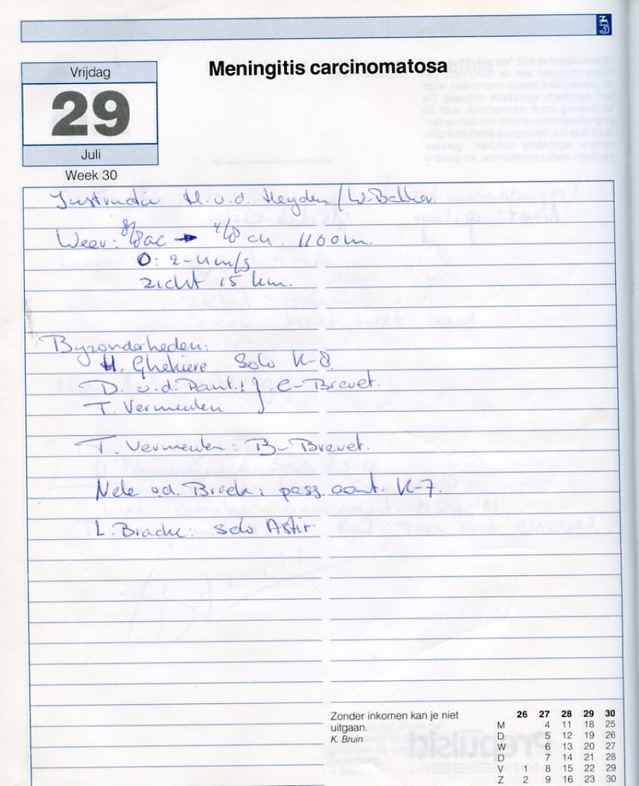 Vrijdag
29
Juli
Week 30
Meningitis carcinomatosa
Instructie H.v.d. Heyden / W. Bakker
Weer: 8/8 ac → 4/8 cu. 1100m.
O: 2-4 m/s
zicht 15 km.
Byzonderheden:
H. Ghekiere Solo K-8
D. v.d. Paut.: } C-Brevet.
T. Vermeulen
T. Vermeulen: B-Brevet.
Nele vd. Broek: pass. aant. K-7.
L. Bracke: solo Astir
Zonder inkomen kan je niet
uitgaan.
K. Bruin
26 27 28 29 30
M 4 11 18 25
D 5 12 19 26
W 6 13 20 27
D 7 14 21 28
V 1 8 15 22 29
Z 2 9 16 23 30